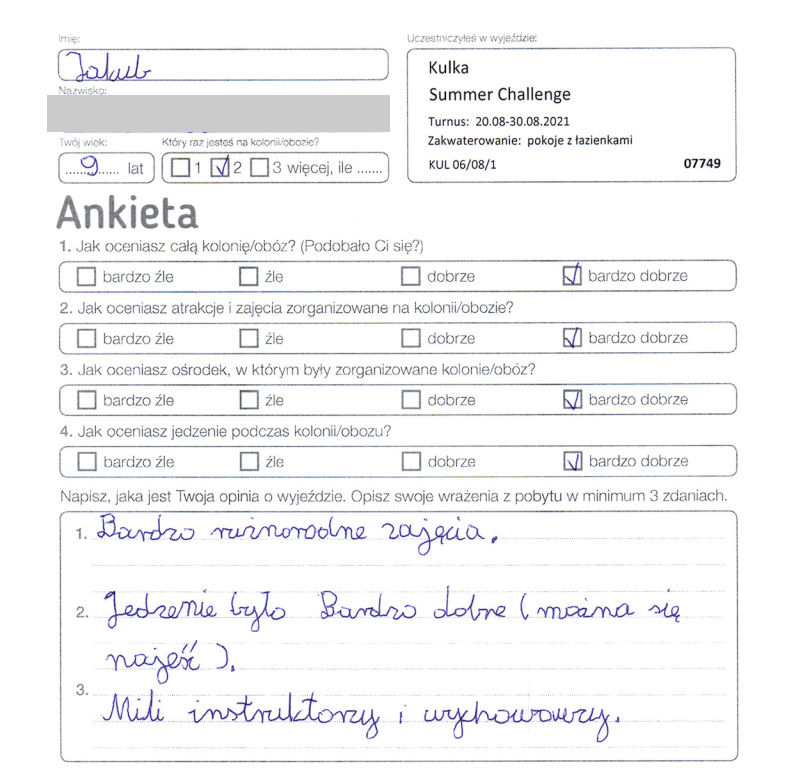 Imię:
Jakub
Nazwisko:
Twój wiek:
Który raz jesteś na kolonii/obozie?
.....9..... lat
1 2 3 więcej, ile .......
Uczestniczyłeś w wyjeździe:
Kulka
Summer Challenge
Turnus: 20.08-30.08.2021
Zakwaterowanie: pokoje z łazienkami
KUL 06/08/1 07749
Ankieta
1. Jak oceniasz całą kolonię/obóz? (Podobało Ci się?)
bardzo źle źle dobrze bardzo dobrze
2. Jak oceniasz atrakcje i zajęcia zorganizowane na kolonii/obozie?
bardzo źle źle dobrze bardzo dobrze
3. Jak oceniasz ośrodek, w którym były zorganizowane kolonie/obóz?
bardzo źle źle dobrze bardzo dobrze
4. Jak oceniasz jedzenie podczas kolonii/obozu?
bardzo źle źle dobrze bardzo dobrze
Napisz, jaka jest Twoja opinia o wyjeździe. Opisz swoje wrażenia z pobytu w minimum 3 zdaniach.
1. Bardzo rużnorodne zajęcia.
2. Jedzenie było Bardzo dobre (można się
najeść).
3. Mili instruktorzy i wychowawcy.